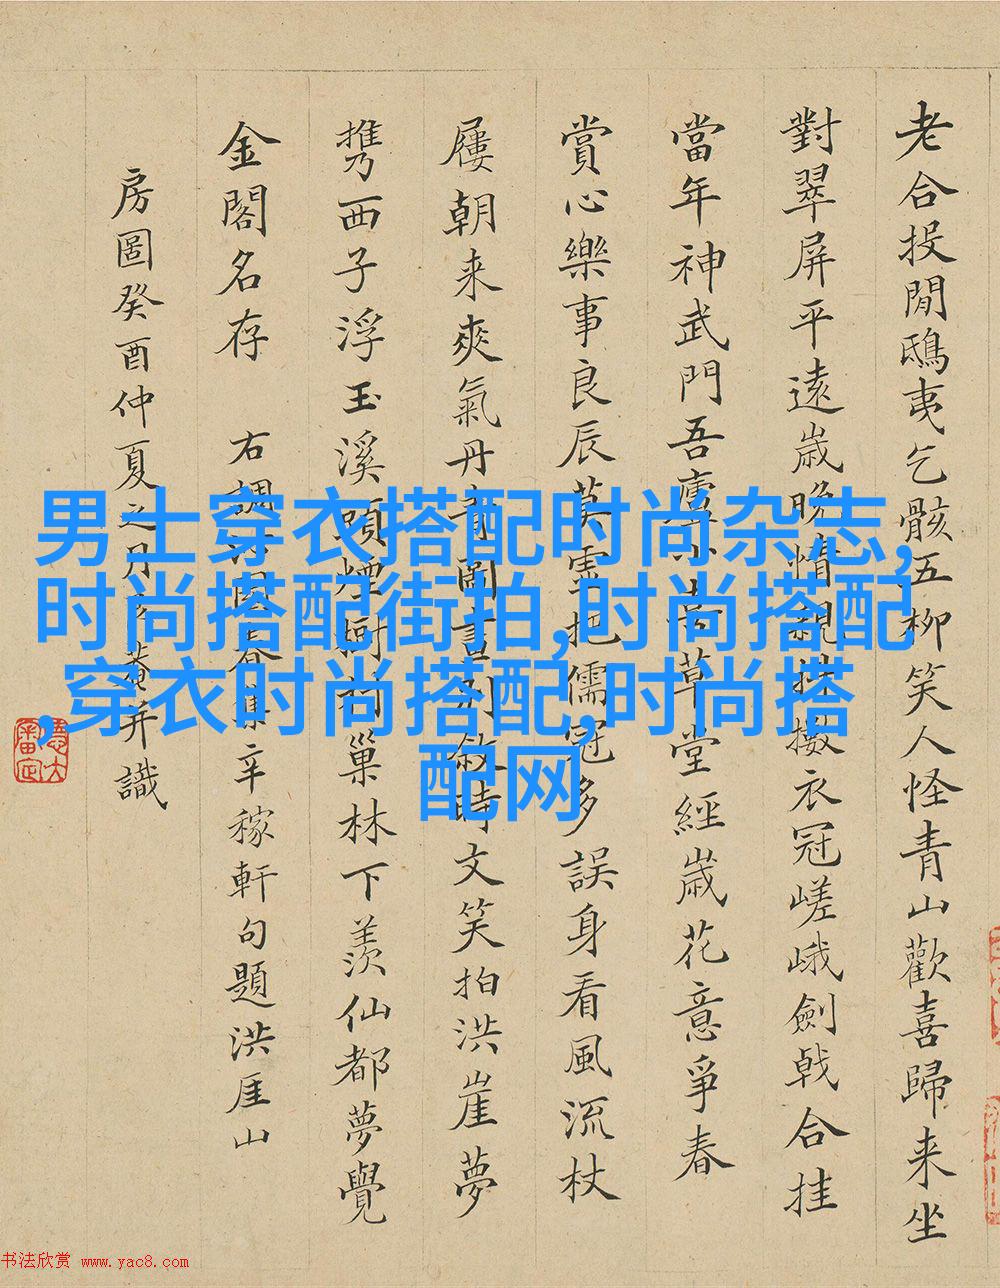 老合投閒鴟夷乞骸五柳笑人怪青山歡喜歸来坐
對翠屏平遠歲晚情親衣冠嵯峨劍戟合挂
當年神武門吾廬小草堂經歲花意爭春
賞心樂事良辰莫把儒冠多誤身看風流杖
屨朝来爽氣丹青圖畫別敘時文笑拍洪崖夢
携西子浮玉溪頭煙樹巢林下羨仙都夢覺
金閣名存 右調沁園春集辛稼軒句題洪厓山
房圖癸酉仲夏之月菴并識
男士穿衣搭配时尚杂志,
时尚搭配街拍,时尚搭配
,穿衣时尚搭配,时尚搭
配网
书法欣赏 www.yac8.com